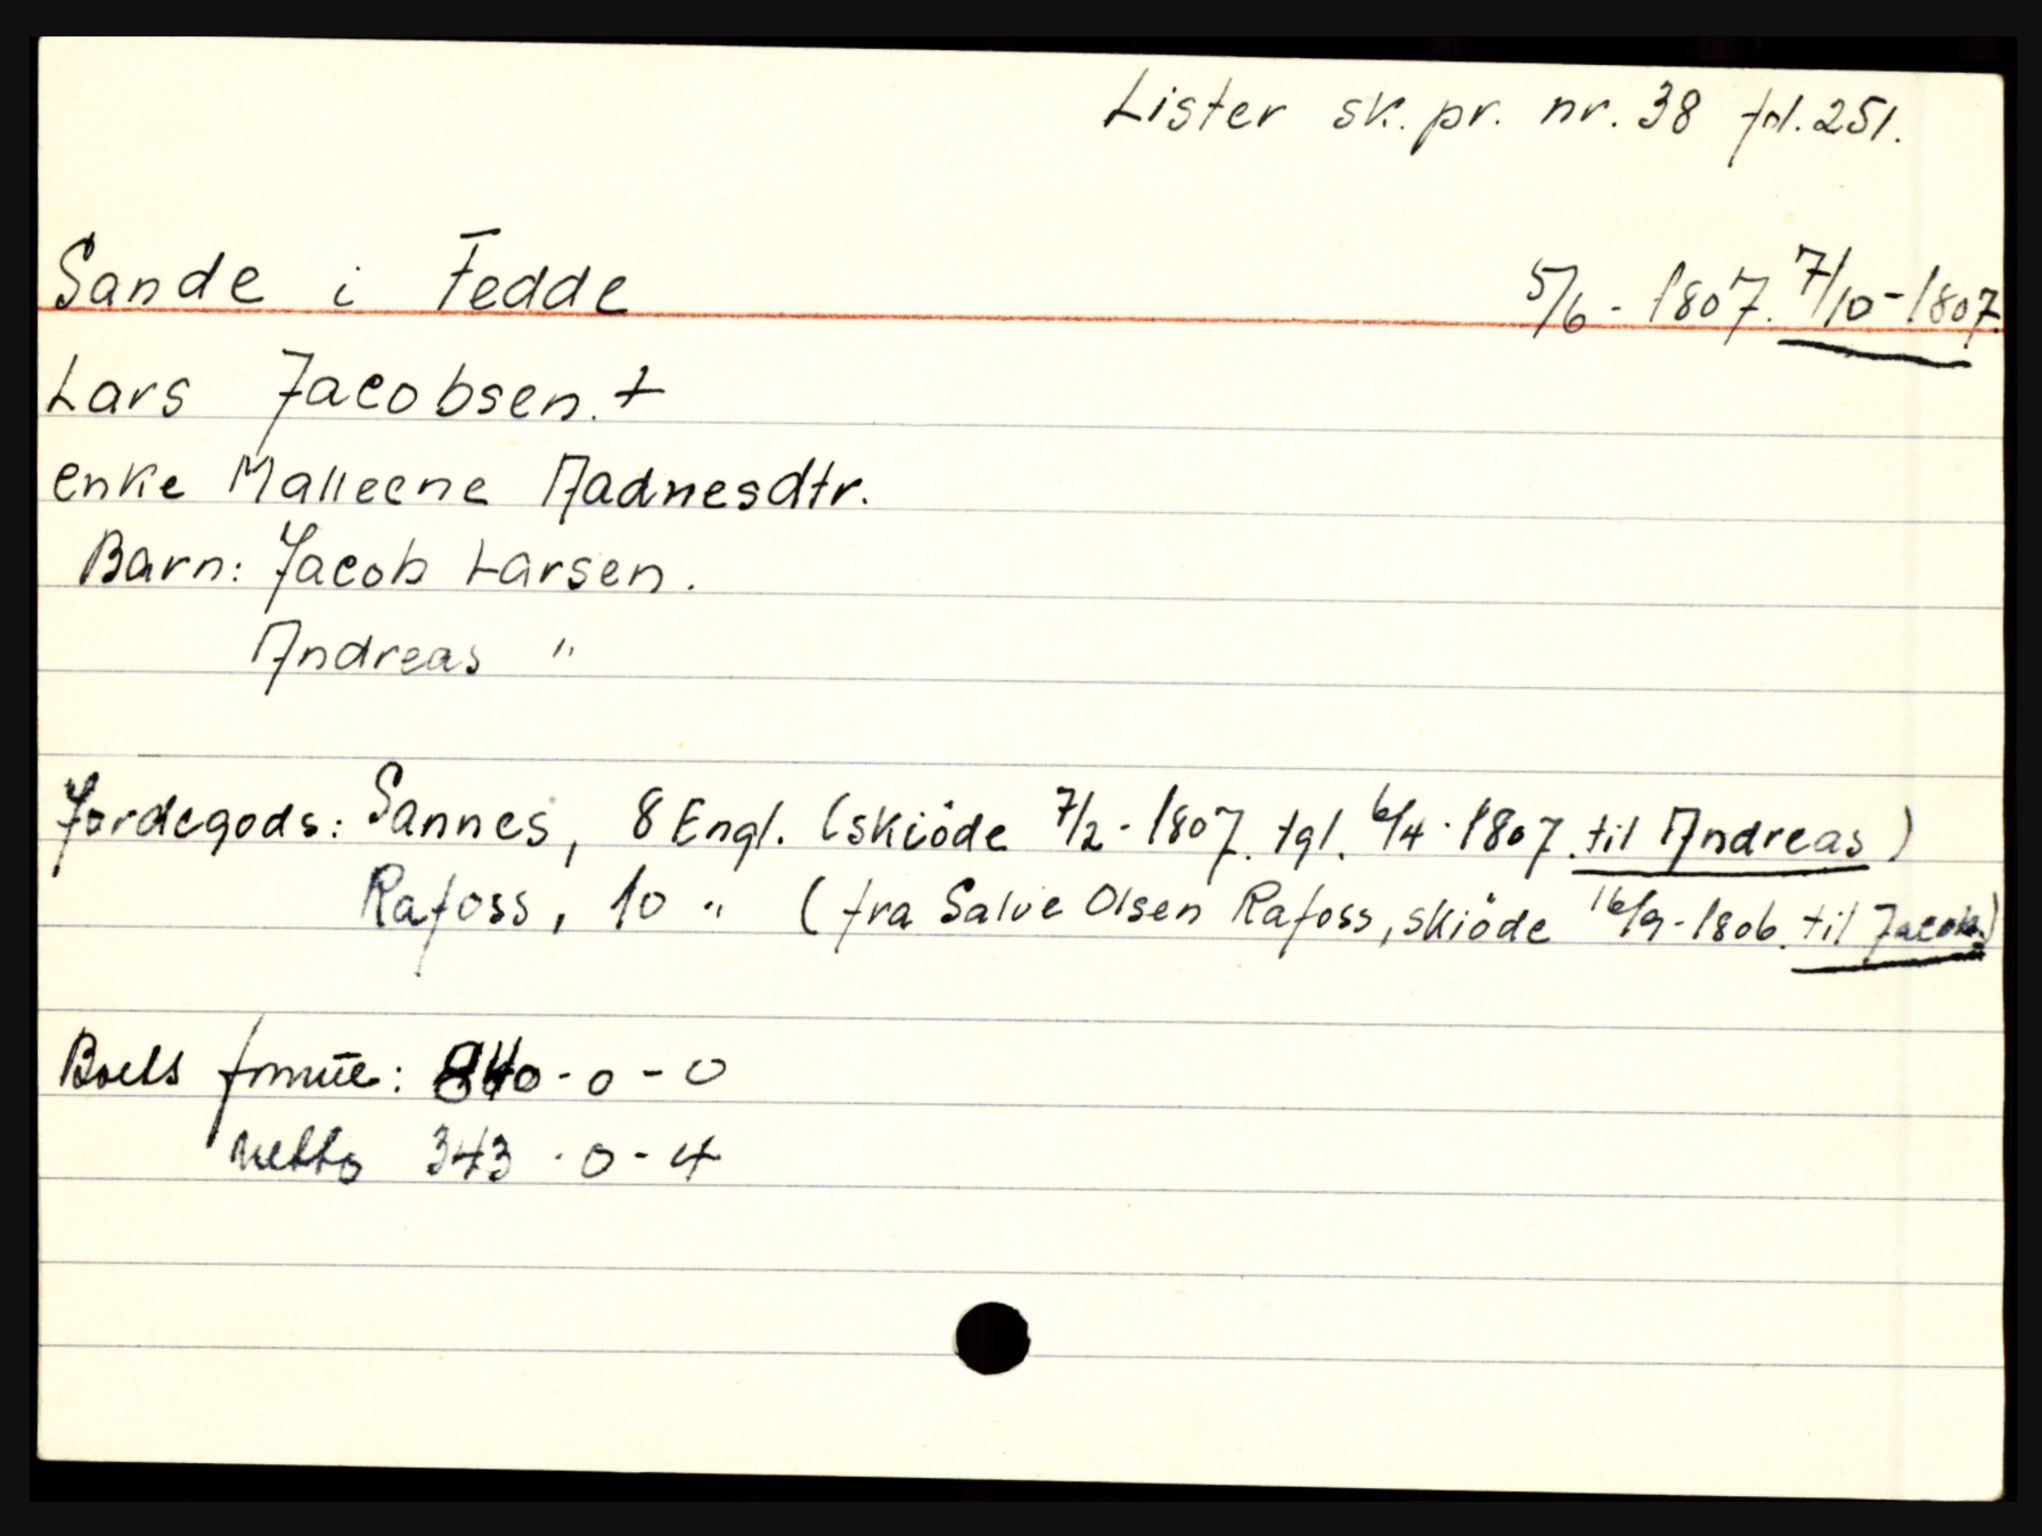 Lister sk. pr. nr. 38 fol. 251.
Sande i Fedde 5/6 - 1807. 7/10 - 1807.
Lars Jacobsen. +
enke Malleene Aadnesdtr.
Barn: Jacob Larsen.
Andreas "
Jordegods: Sannes, 8 Engl. (skiöde 7/2 - 1807. tgl. 6/4 - 1807. til Andreas)
Rafoss, 10 " (fra Salve Olsen Rafoss, skiöde 16/9 - 1806. til Jacob.)
Boets formue: 840 - 0 - 0
netto 343 - 0 - 4